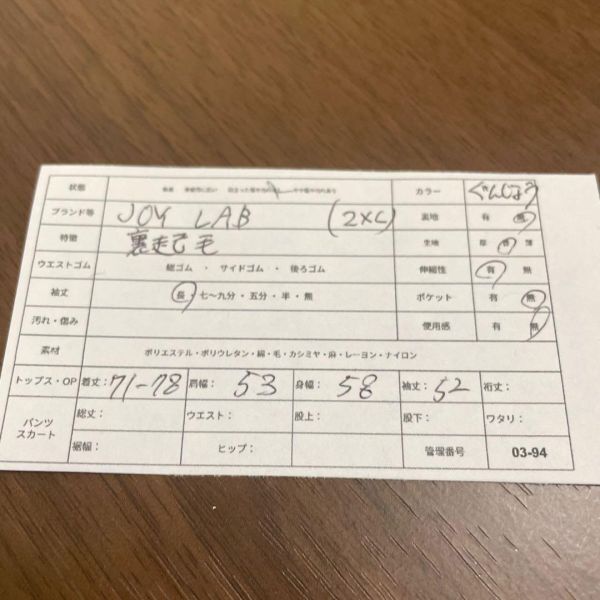 状態 新品 未使用に近い 目立った傷や汚れなし やや傷や汚れあり カラー ぐんじょう
ブランド等 JOY LAB (2XL) 裏地 有 無
特徴 裏起毛 生地 厚 普 薄
ウエストゴム 総ゴム ・ サイドゴム ・ 後ろゴム 伸縮性 有 無
袖丈 長・七〜九分・五分・半・無 ポケット 有 無
汚れ・傷み 使用感 有 無
素材 ポリエステル・ポリウレタン・綿・毛・カシミヤ・麻・レーヨン・ナイロン
トップス・OP 着丈:71-78 肩幅:53 身幅:58 袖丈:52 裄丈:
パンツ スカート 総丈: ウエスト: 股上: 股下: ワタリ:
裾幅: ヒップ: 管理番号 03-94